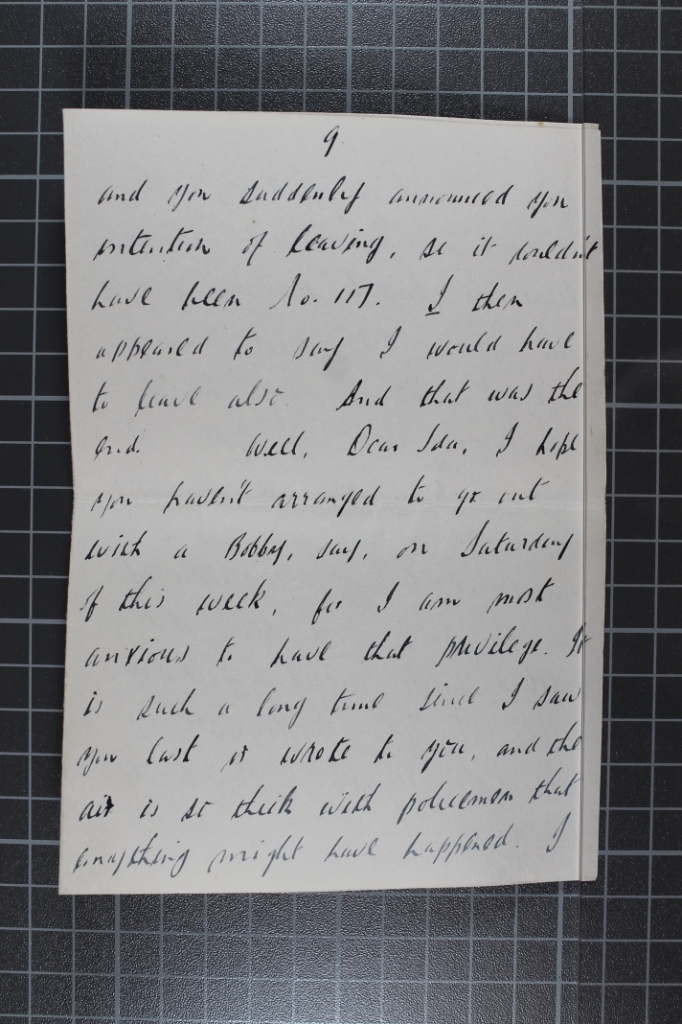 9
and you suddenly announced you
intention of leaving, so it couldn't
have been No. 117. I then
appeared to say I would have
to leave also. And that was the
end. Well, Dear Ida, I hope
you haven't arranged to go out
with a Bobby, say, on Saturday
of this week, for I am most
anxious to have that privilege. It
is such a long time since I saw
you last or wrote to you, and the
air is so thick with policemen that
anything might have happened. I